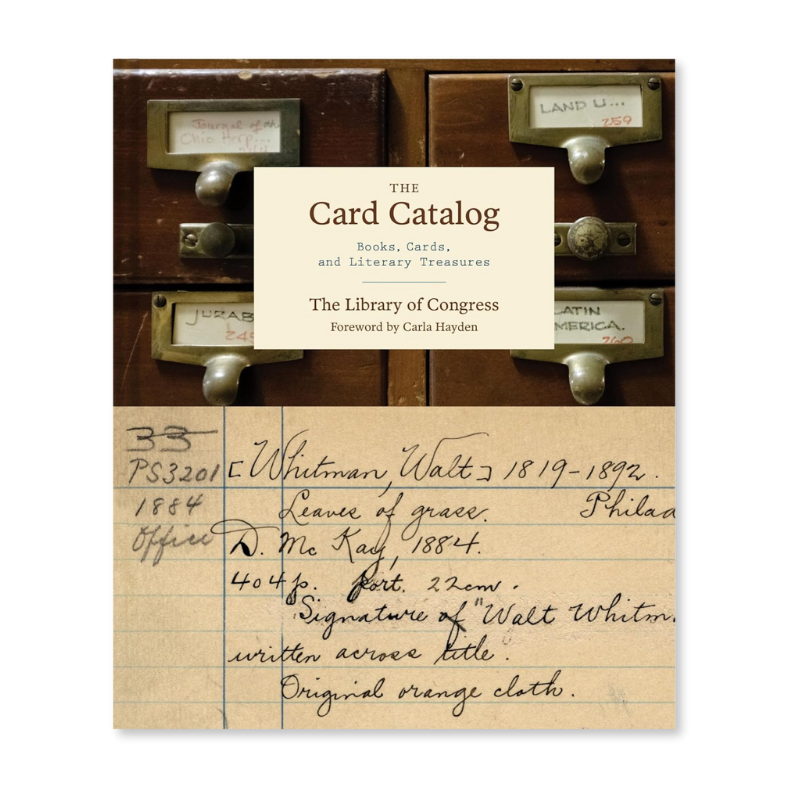 Journal of the
Ohio Herp...
LAND U...
259
THE
Card Catalog
Books, Cards,
and Literary Treasures
The Library of Congress
Foreword by Carla Hayden
JURAB
245
LATIN
AMERICA.
260
33
PS3201 [Whitman, Walt] 1819-1892.
1884 Leaves of grass. Philad
Office D. Mc Kay, 1884.
404 p. port. 22cm.
Signature of "Walt Whitm
written across title.
Original orange cloth.